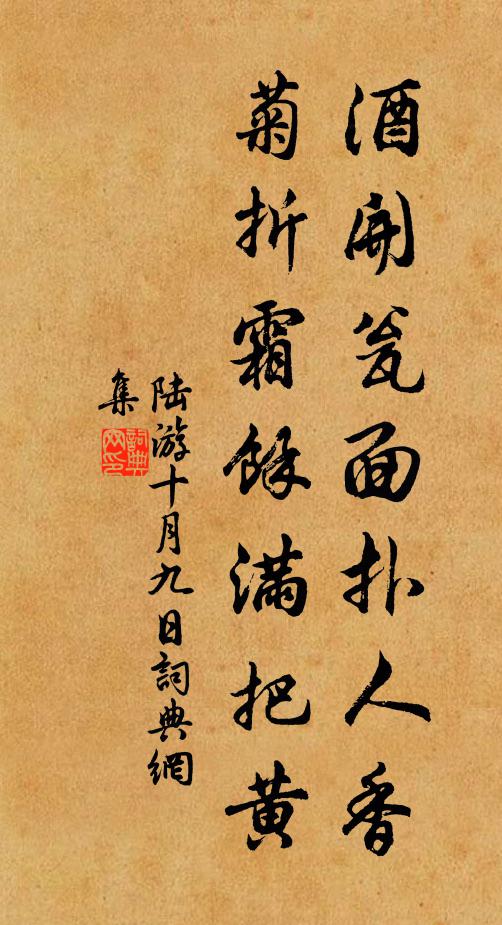 酒開瓮面扑人香
菊折霜餘满把黄
陆游十月九日詞典網
集
詞典
网印